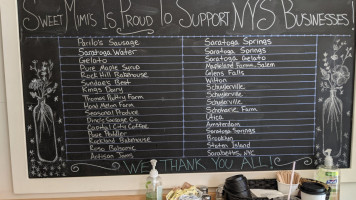 Sweet Mimis Is Proud To Support NYS Businesses
Parillo's Sausage Saratoga Springs
Saratoga Water Saratoga Springs
Gelato Saratoga Gelato
Pure Maple Syrup Mapleland Farms, Salem
Rock Hill Bakehouse Glens Falls
Sundae's Best Wilton
Kings Dairy Schuylerville
Thomas Poultry Farm Schuylerville
Hand Melon Farm Schuylerville
Seasonal Produce Schoharie Farm
Utica
Capital City Coffee Amsterdam
Pure Peddler Saratoga Springs
Rockland Bakehouse Brooklyn
Rosa Balsamic Staten Island
Artisan Jams Sarabeths, NYC
We Thank You All!